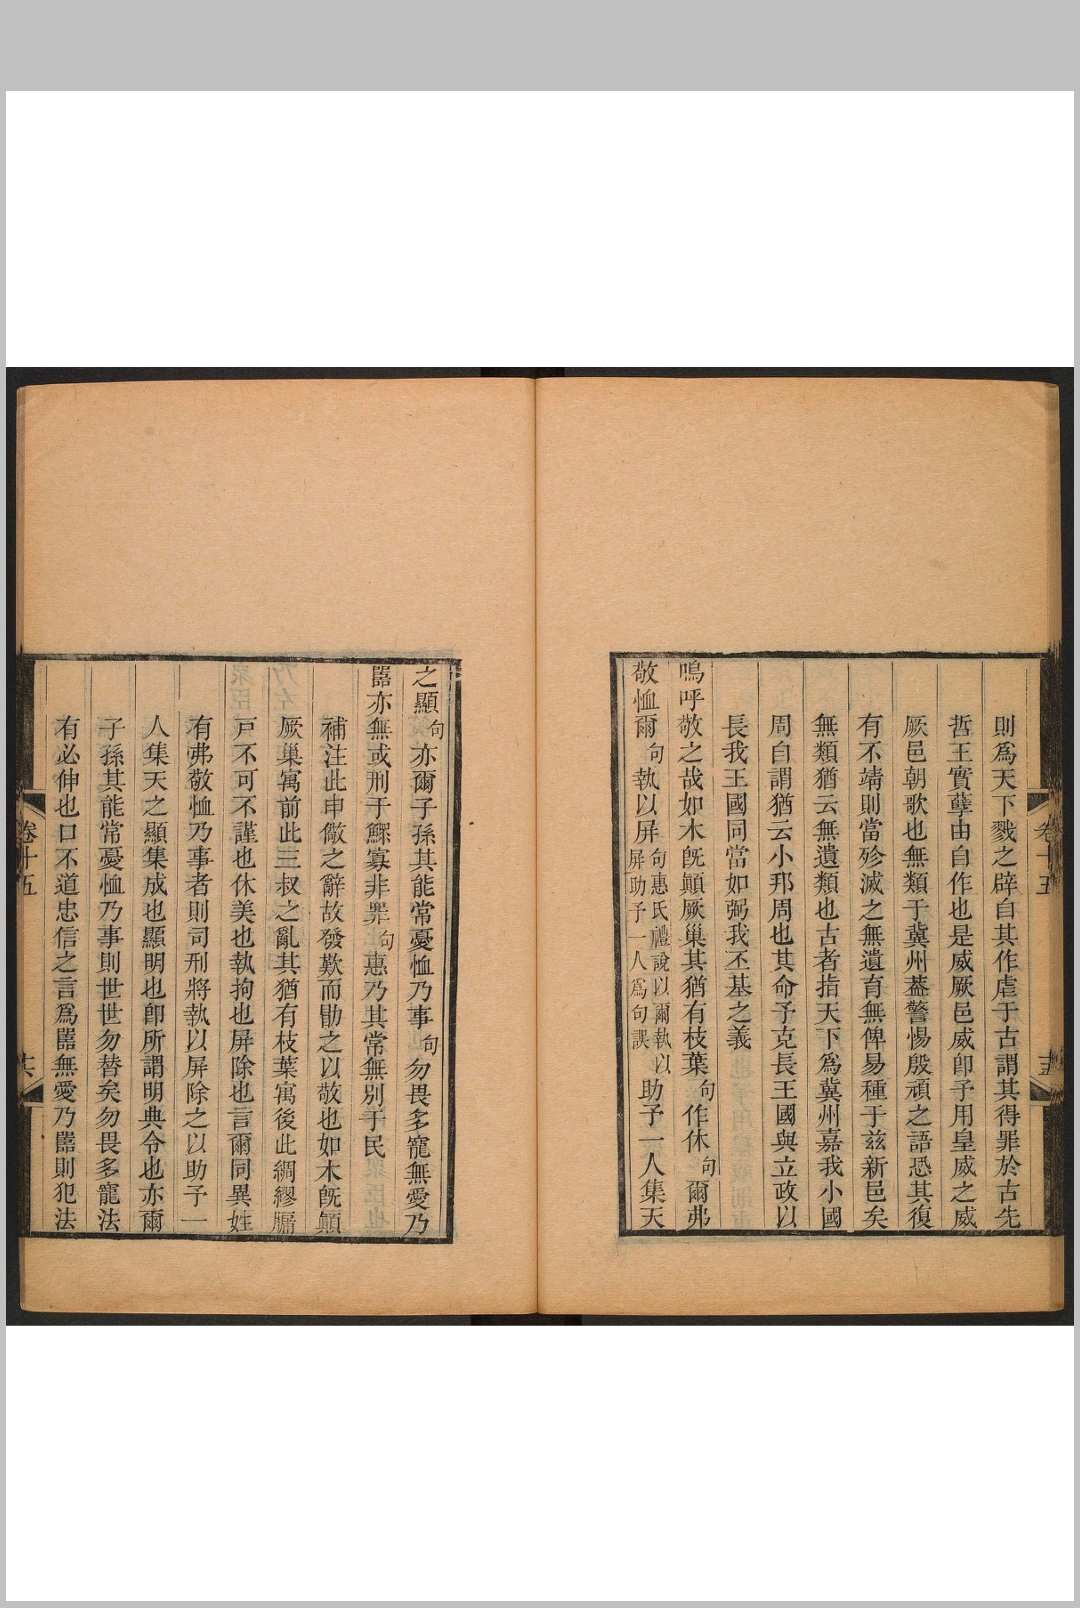 則爲天下戮之辟自其作虐于古謂其得罪於古先
哲王實孽由自作也是威厥邑威卽予用皇威之威
厥邑朝歌也無類于冀州葢警惕殷頑之語恐其復
有不靖則當殄滅之無遺育無俾易種于兹新邑矣
無類猶云無遺類也古者指天下爲冀州嘉我小國
周自謂猶云小邦周也其命予克長王國與立政以
長我王國同當如弼我丕基之義
嗚呼敬之哉如木旣顚厥巢其猶有枝葉句作休句爾弗
敬恤爾句執以屏句惠氏禮說以爾執以屏助予一人爲句誤助予一人集天
卷十五
之顯句亦爾子孫其能常憂恤乃事句勿畏多寵無愛乃
嚚亦無或刑于鰥寡非罪句惠乃其常無別于民
補注此申儆之辭故發歎而勖之以敬也如木旣顚
厥巢寓前此三叔之亂其猶有枝葉寓後此綢繆牖
戸不可不謹也休美也執拘也屏除也言爾同異姓
有弗敬恤乃事者則司刑將執以屏除之以助予一
人集天之顯集成也顯明也卽所謂明典令也亦爾
子孫其能常憂恤乃事則世世勿替矣勿畏多寵法
有必伸也口不道忠信之言爲嚚無愛乃嚚則犯法
卷十五